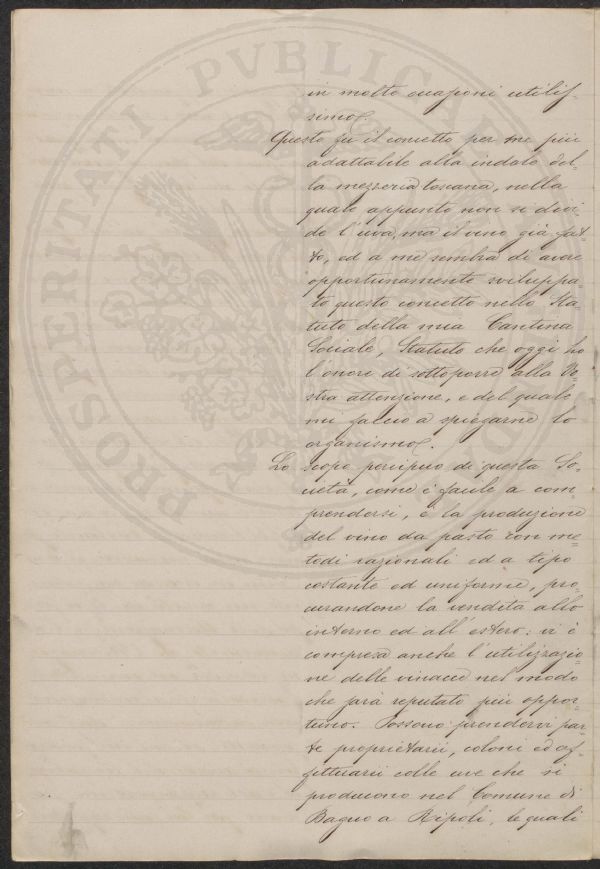 PROSPERITATI PVBLICAE
in molte occasioni utilis=
simo.
Questo fu il concetto per me più
adattabile alla indole del=
la mezzeria toscana, nella
quale appunto non si divi=
de l'uva, ma il vino già fat=
to, ed a me sembra di avere
opportunamente sviluppa=
to questo concetto nello Sta=
tuto della mia Cantina
Sociale, Statuto che oggi ho
l'onore di sottoporre alla Vo=
stra attenzione, e del quale
mi faccio a spiegarne lo
organismo.
Lo scopo percipuo di questa So=
cietà, come è facile a com
prendersi, è la produzione
del vino da pasto con me=
todi razionali ed a tipo
costante ed uniforme, pro=
curandone la vendita allo
interno ed all'estero: vi è
compresa anche l'utilizzazio=
ne delle vinacce nel modo
che sarà reputato più oppor=
tuno. Possono prendervi par=
te proprietarii, coloni ed af=
fittuarii colle uve che si
producono nel Comune di
Bagno a Ripoli, le quali